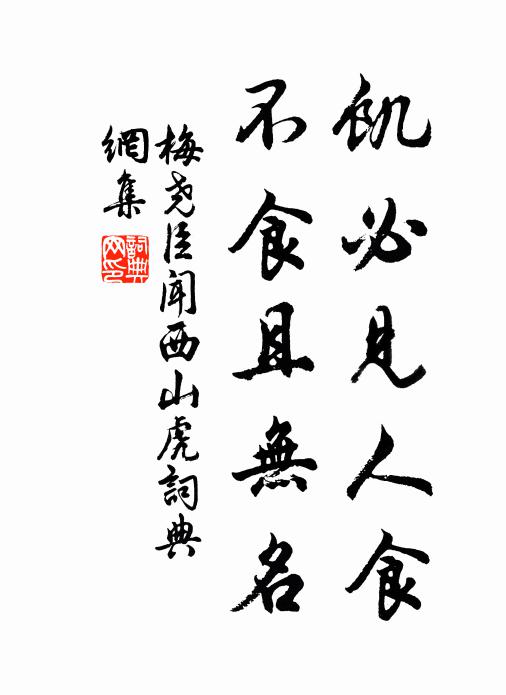 飢必見人食
不食且無名
梅堯臣聞西山虎詞典
網集
詞典
网印